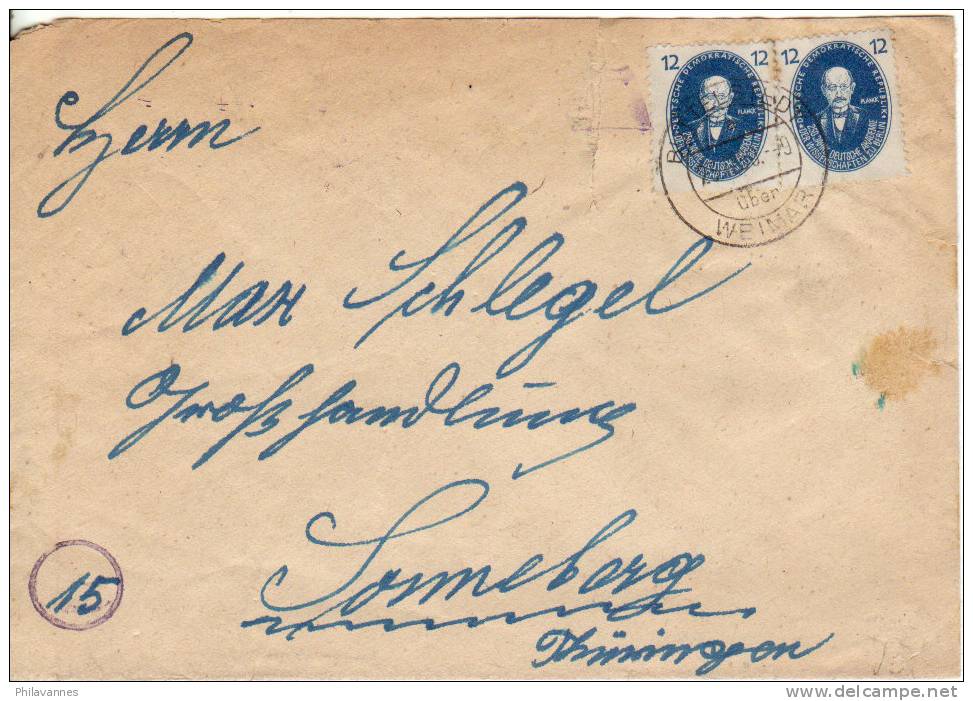 12 12 12 12
DEUTSCHE DEMOKRATISCHE REPUBLIK DEUTSCHE DEMOKRATISCHE REPUBLIK
PLANCK PLANCK
DEUTSCHE AKADEMIE DER WISSENSCHAFTEN ZU BERLIN DEUTSCHE AKADEMIE DER WISSENSCHAFTEN ZU BERLIN
über
WEIMAR
Herrn
Max Schlegel
Großhandlung
Sonneberg
Thüringen
15
Philavannes
www.delcampe.net